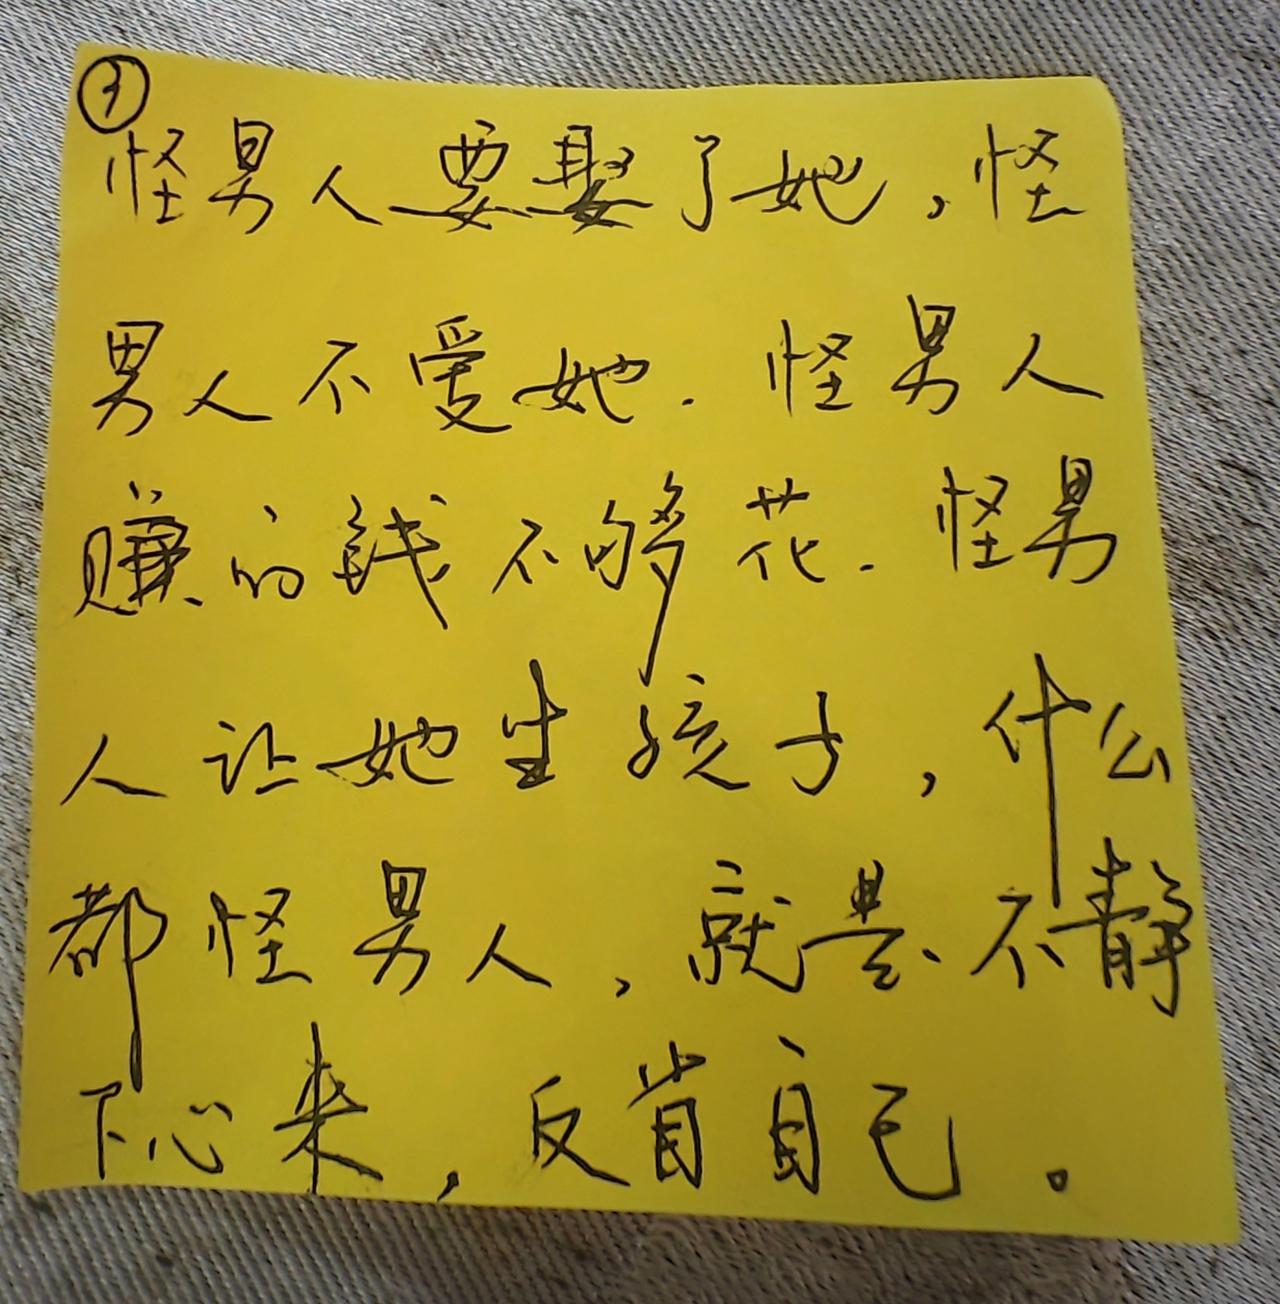 怪男人要娶了她，怪
男人不爱她.怪男人
赚的钱不够花.怪男
人让她生孩子，什么
都怪男人，就是不静
下心来，反省自己。